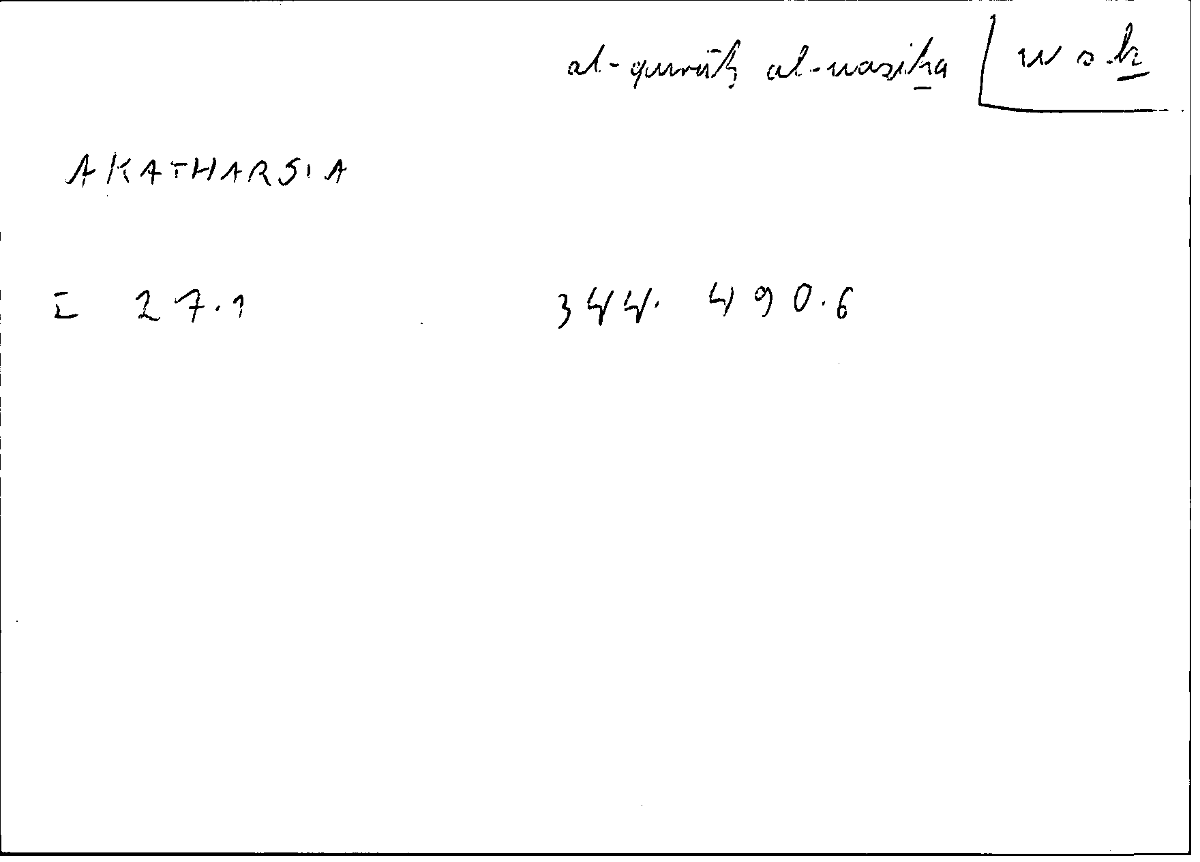 al-qurūḥ al-wasiḵa w s ḵ
AKATHARSIA
I 27.1 344. 490.6